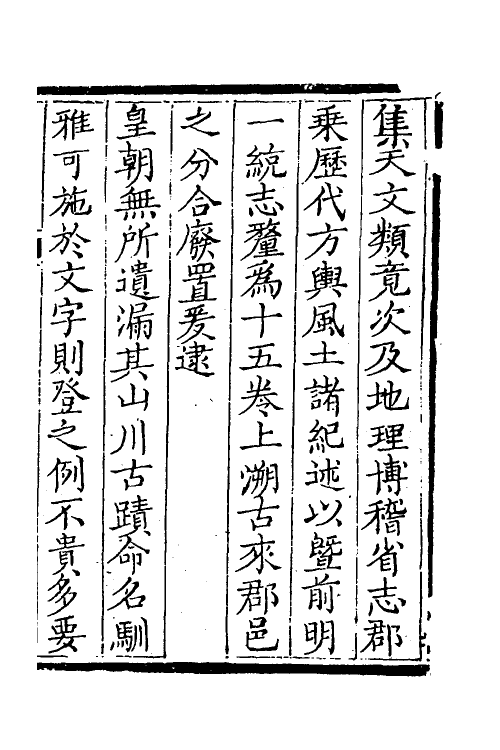 集天文類竟次及地理博稽省志郡
乗歷代方輿風土諸紀述以曁前明
一統志釐為十五卷上溯古來郡邑
之分合廢置爰逮
皇朝無所遺漏其山川古蹟命名馴
雅可施於文字則登之例不貴多要